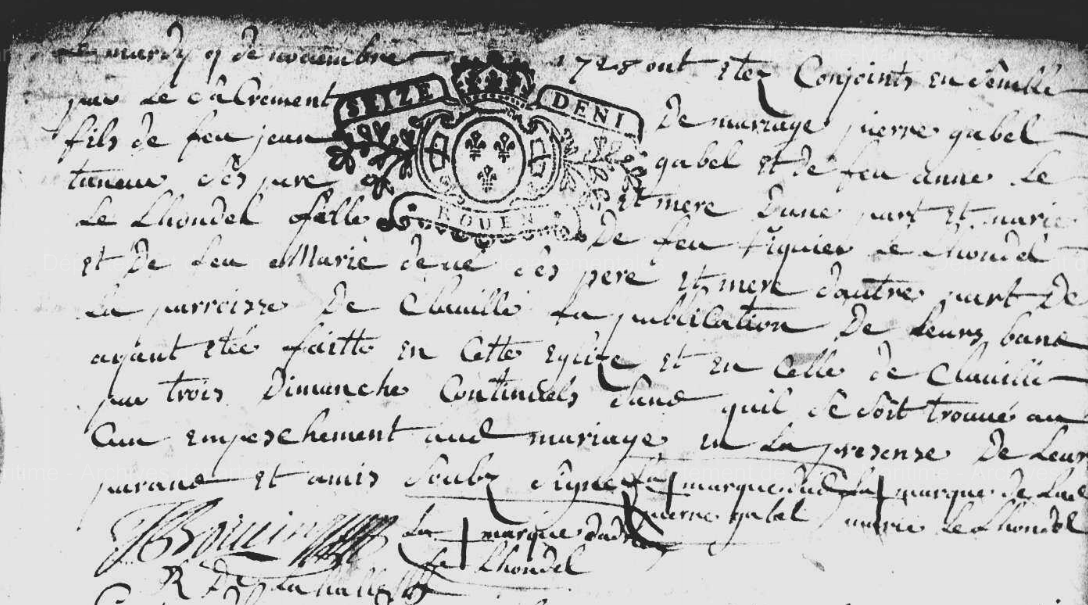 Le mardy 9 de novembre 1728 ont etez Conjoints en semble
par Le sacrement De mariage pierre gabel
fils de feu jean gabel et de feu anne Le
taneur ses pere et mere Dune part et marie
Le Lhondel fille De feu Le Lhondel
et De feu Marie ses pere et mere dautre part De
La parroisse De Claville La publication De Leurs bans
ayant etée faitte en Cette eglize et en Celle de Claville
par trois Dimanche Continüels sans quil se soit trouvé au
Cun empeschement aud mariage en La presense De Leur
parans et amis soubz signez La marque dud La marque de Lad
pierre gabel marie Le Lhondel
La marque dud
Le Lhondel
R De La halle
SEIZE DENI
ROUEN